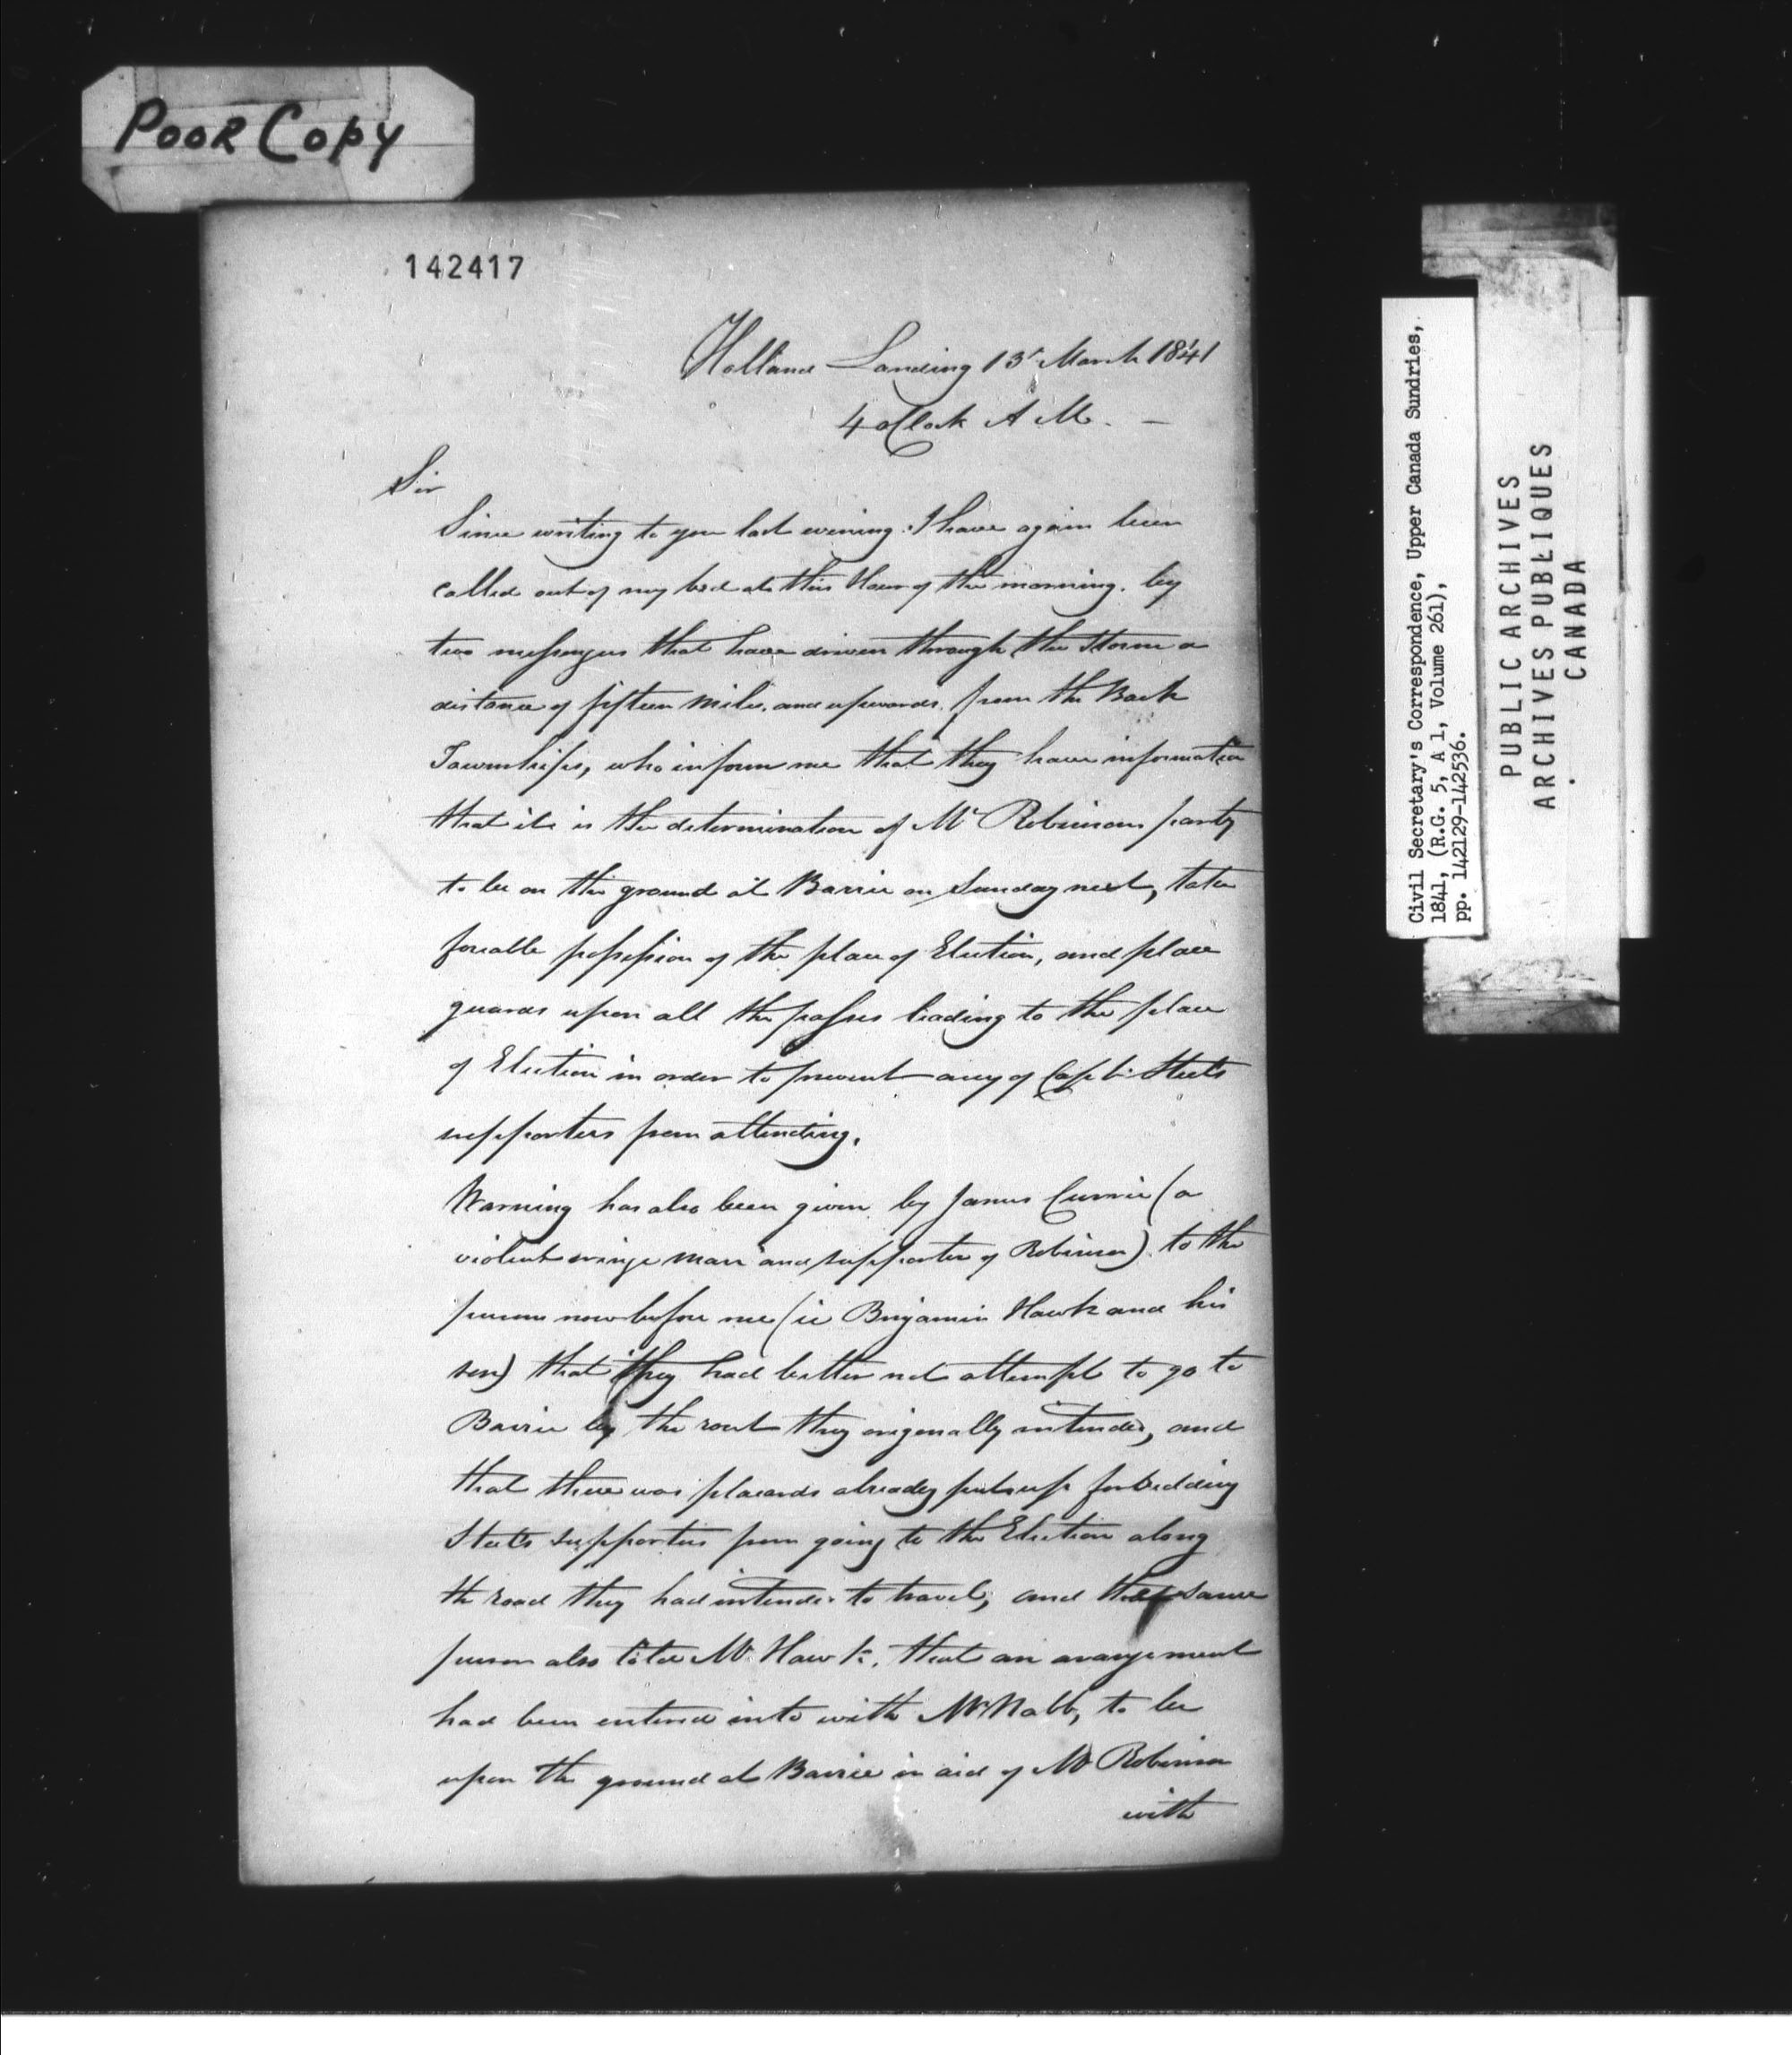 POOR COPY
142417
Holland Landing 13th March 1841
4 oClock A M. –
Sir
Since writing to you last evening. I have again been
called out of my bed at this Hour of the morning. by
two messengers that have driven through the Storm a
distance of fifteen Miles. and upwards. from the Back
Townships, who inform me that they have information
that it is the determination of Mr Robinsons party
to be on the ground at Barrie on Sunday next, take
forcable possession of the place of Election, and place
guards upon all the passes leading to the place
of Election in order to prevent any of Capt. Steels
supporters from attending.
Warning has also been given by James Currie (a
violent orange man and supporter of Robinson) to the
persons now before me (ie Benjamin Hawk and his
son) that they had better not attempt to go to
Barrie by the rout they origenally intended, and
that there was placards already put up forbidding
Steels supporters from going to the Election along
the road they had intended to travel, and the same
person also told Mr Hawk. that an arangement
had been entered into with McNabb, to be
upon the ground at Barrie in aid of Mr Robinson
with
Civil Secretary's Correspondence, Upper Canada Sundries,
1841, (R.G. 5, A 1, Volume 261),
pp. 142129-142536.
PUBLIC ARCHIVES
ARCHIVES PUBLIQUES
CANADA